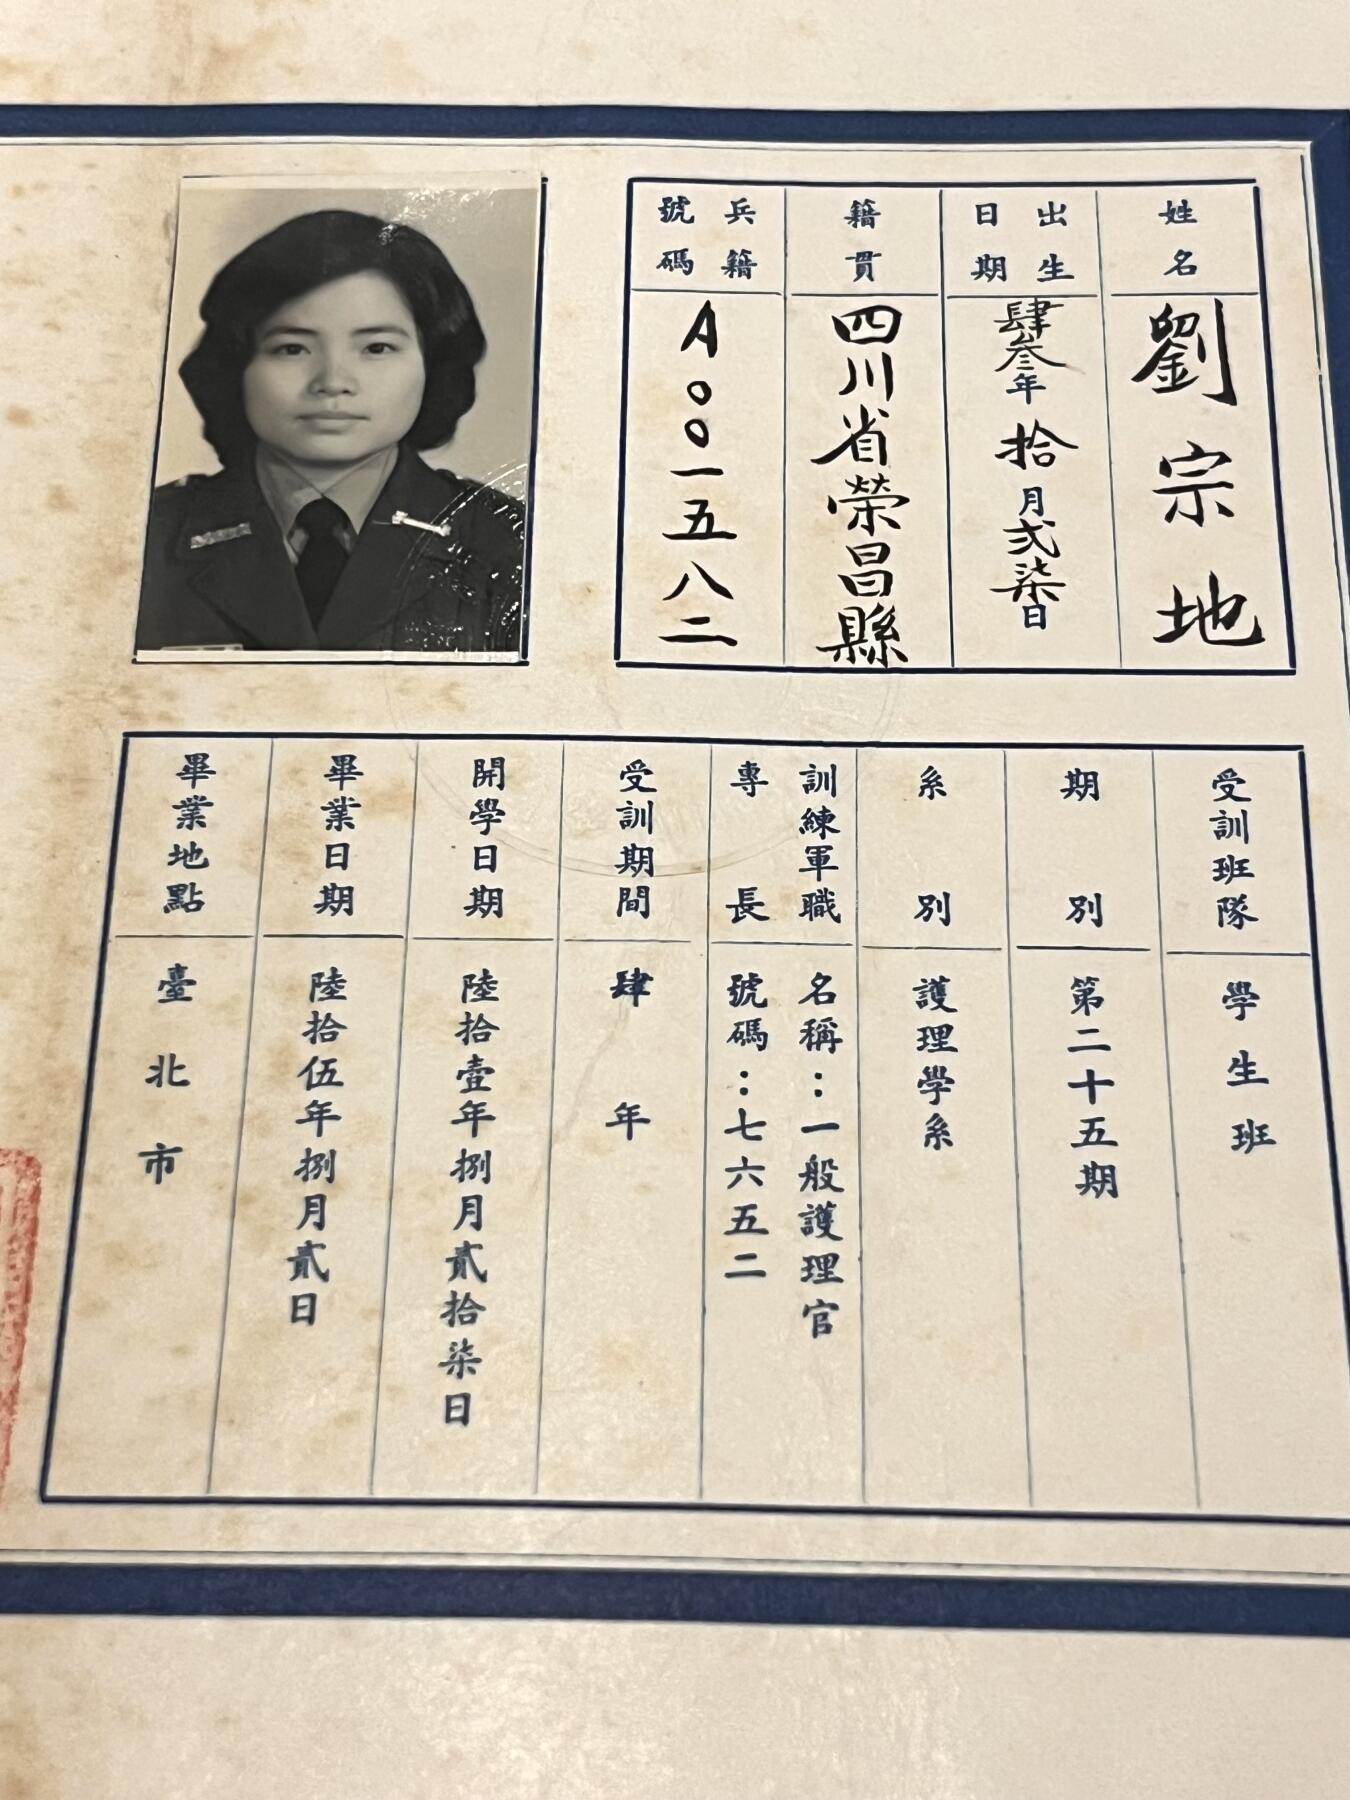 姓名
劉宗地
出生日期
肆叁年拾月弍柒日
籍貫
四川省榮昌縣
兵籍號碼
A〇〇一五八二
受訓班隊
學生班
期別
第二十五期
系別
護理學系
訓練軍職專長
名稱：一般護理官
號碼：七六五二
受訓期間
肆年
開學日期
陸拾壹年捌月貳拾柒日
畢業日期
陸拾伍年捌月貳日
畢業地點
臺北市